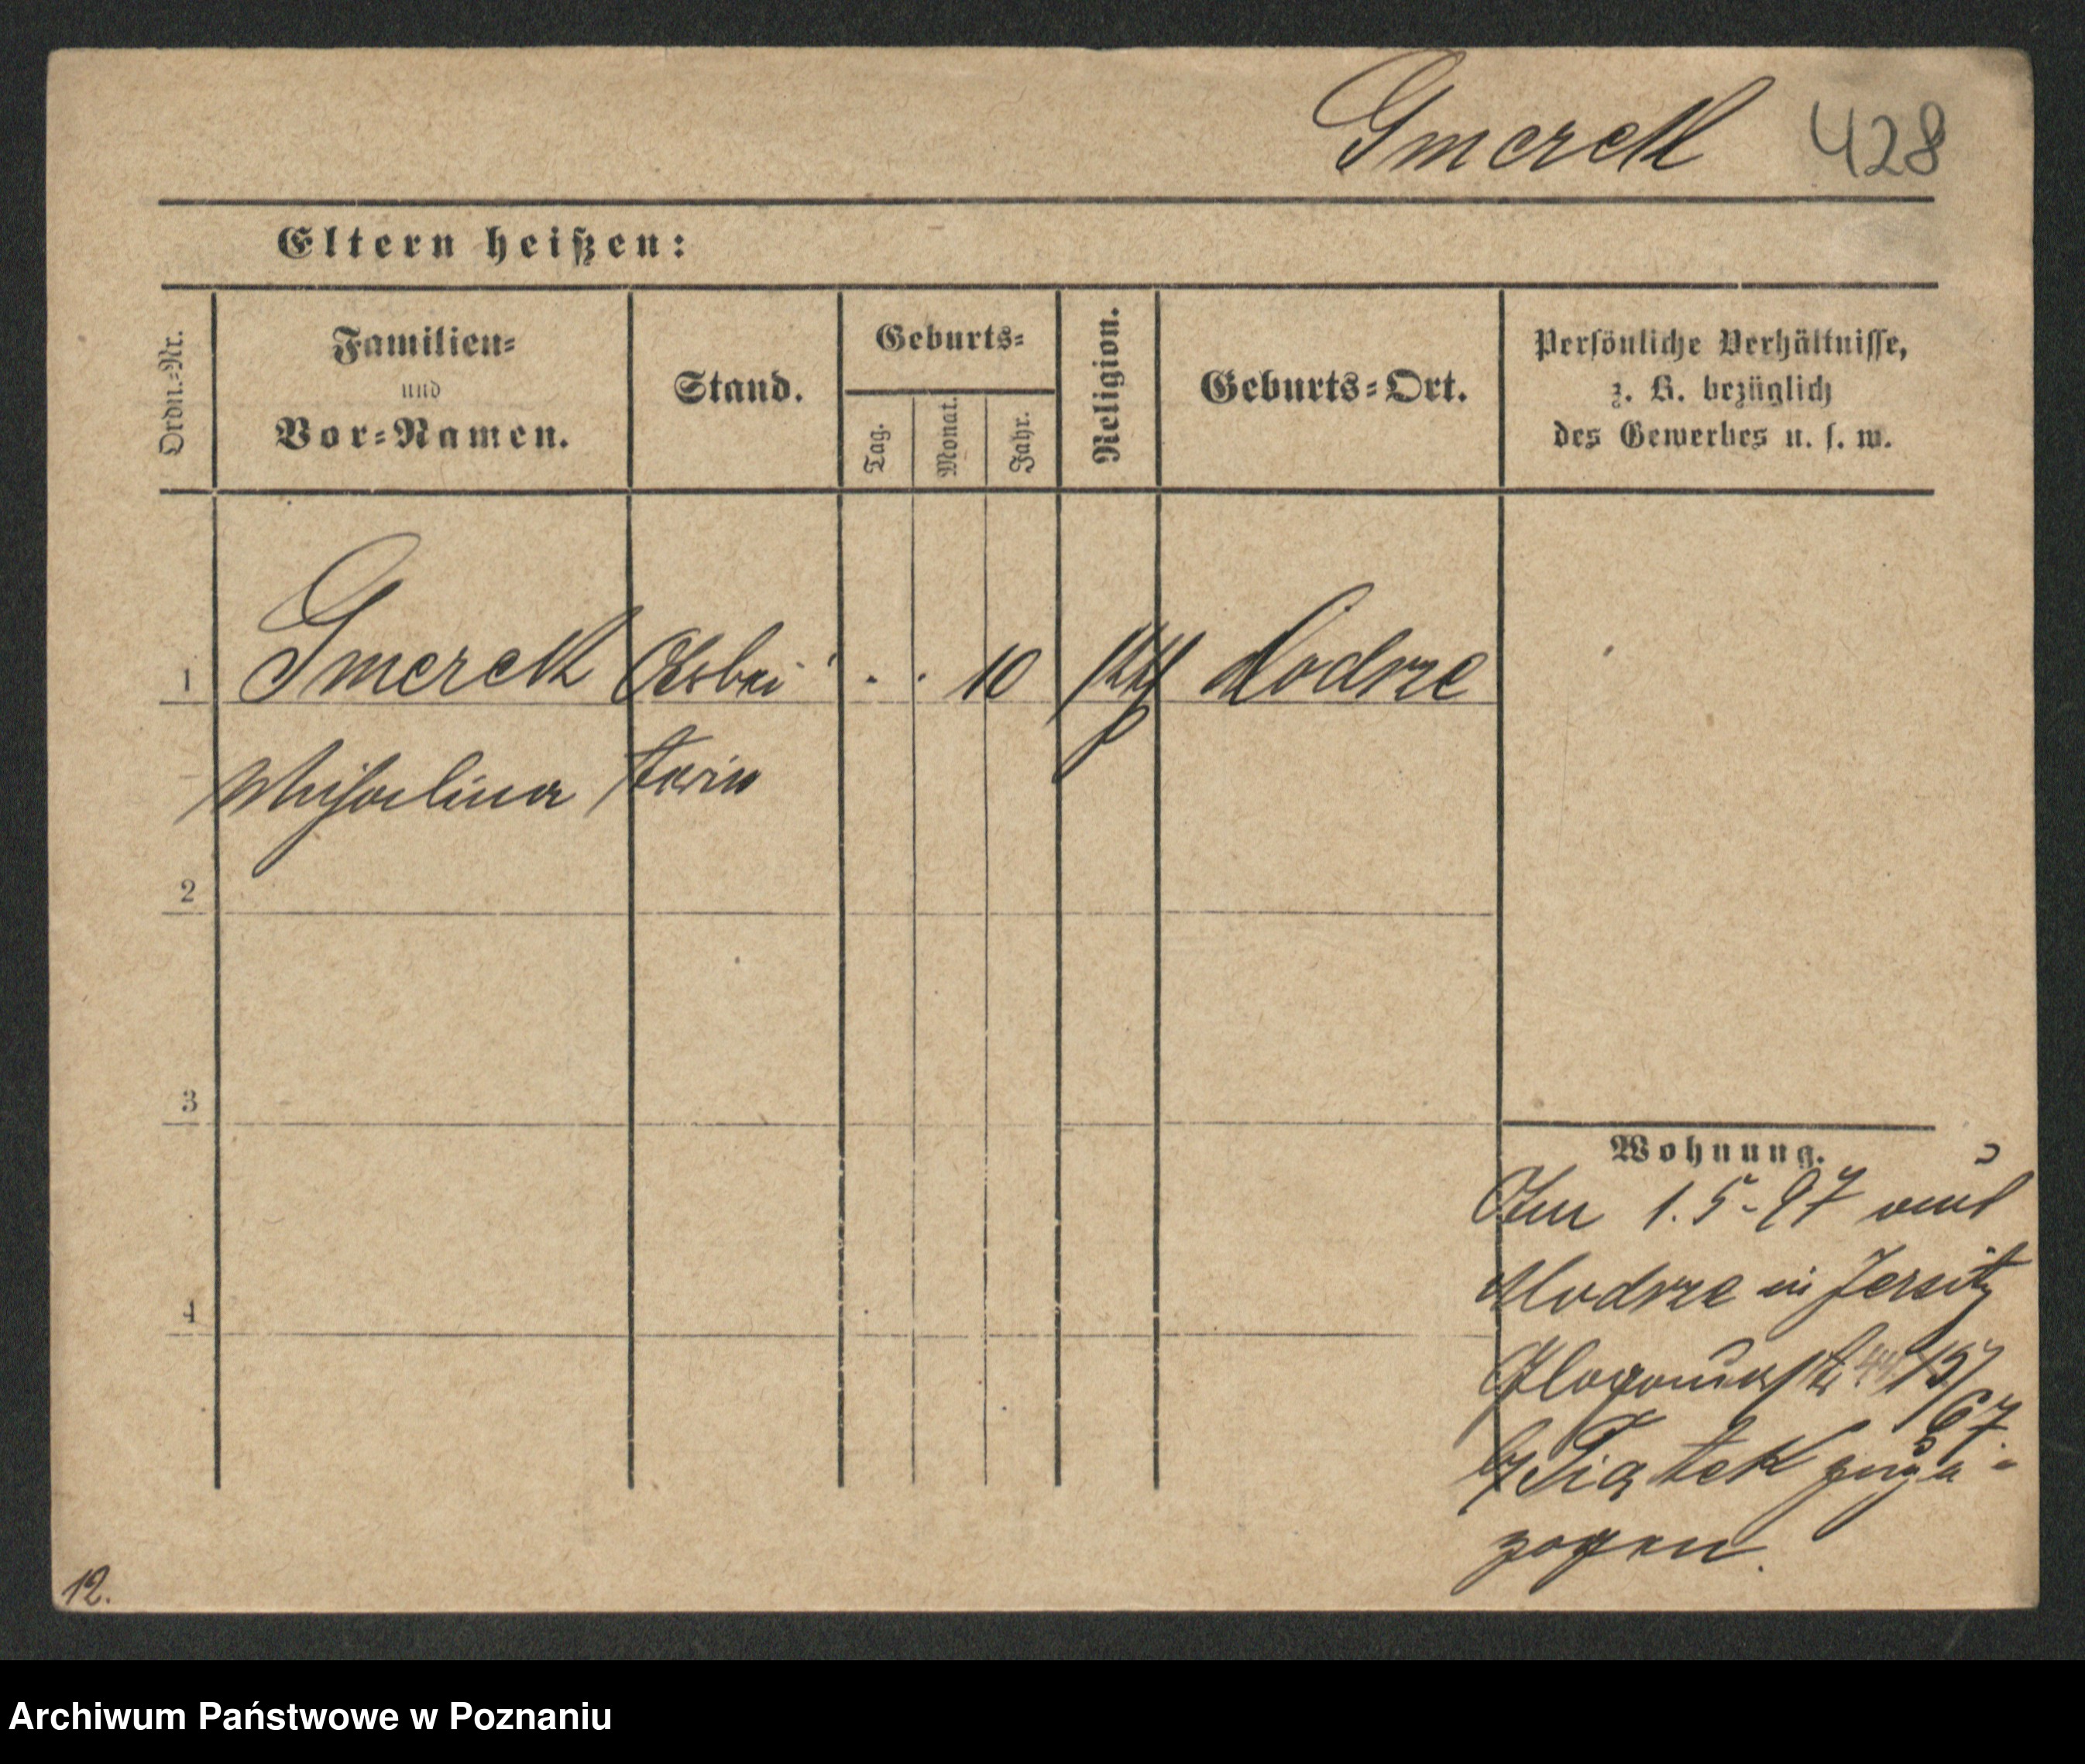 Gmerek 428
Eltern heißen:
Ordn.-Nr.
Familien-
und
Vor-Namen.
Stand.
Geburts-
Tag.
Monat.
Jahr.
Religion.
Geburts-Ort.
Persönliche Verhältnisse,
z. B. bezüglich
des Gewerbes u. s. w.
1 Gmerek Arbei . . 10 Modrze
Michalina terin
2
3
4
Wohnung.
Am 1.5-97 aus
Modrze in Jersitz
Glogauerstr. 157
67.
b/ Piątek zuge-
zogen.
12.
Archiwum Państwowe w Poznaniu